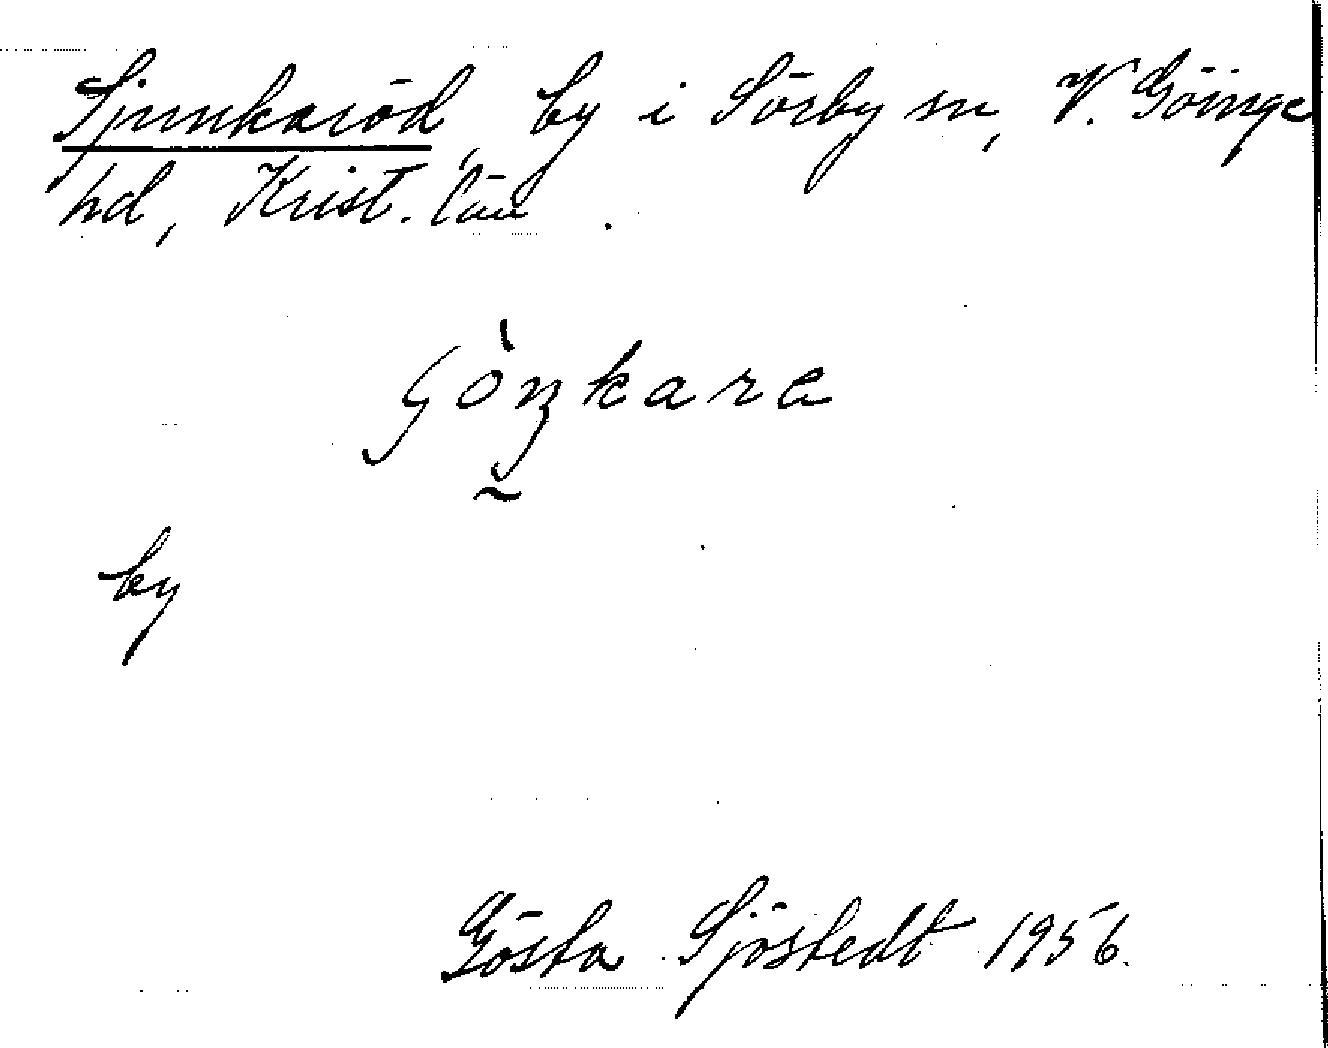 Sjunkaröd, by i Sörby sn, V. Göinge
hd, Krist. län.
by
Gösta Sjöstedt 1956.